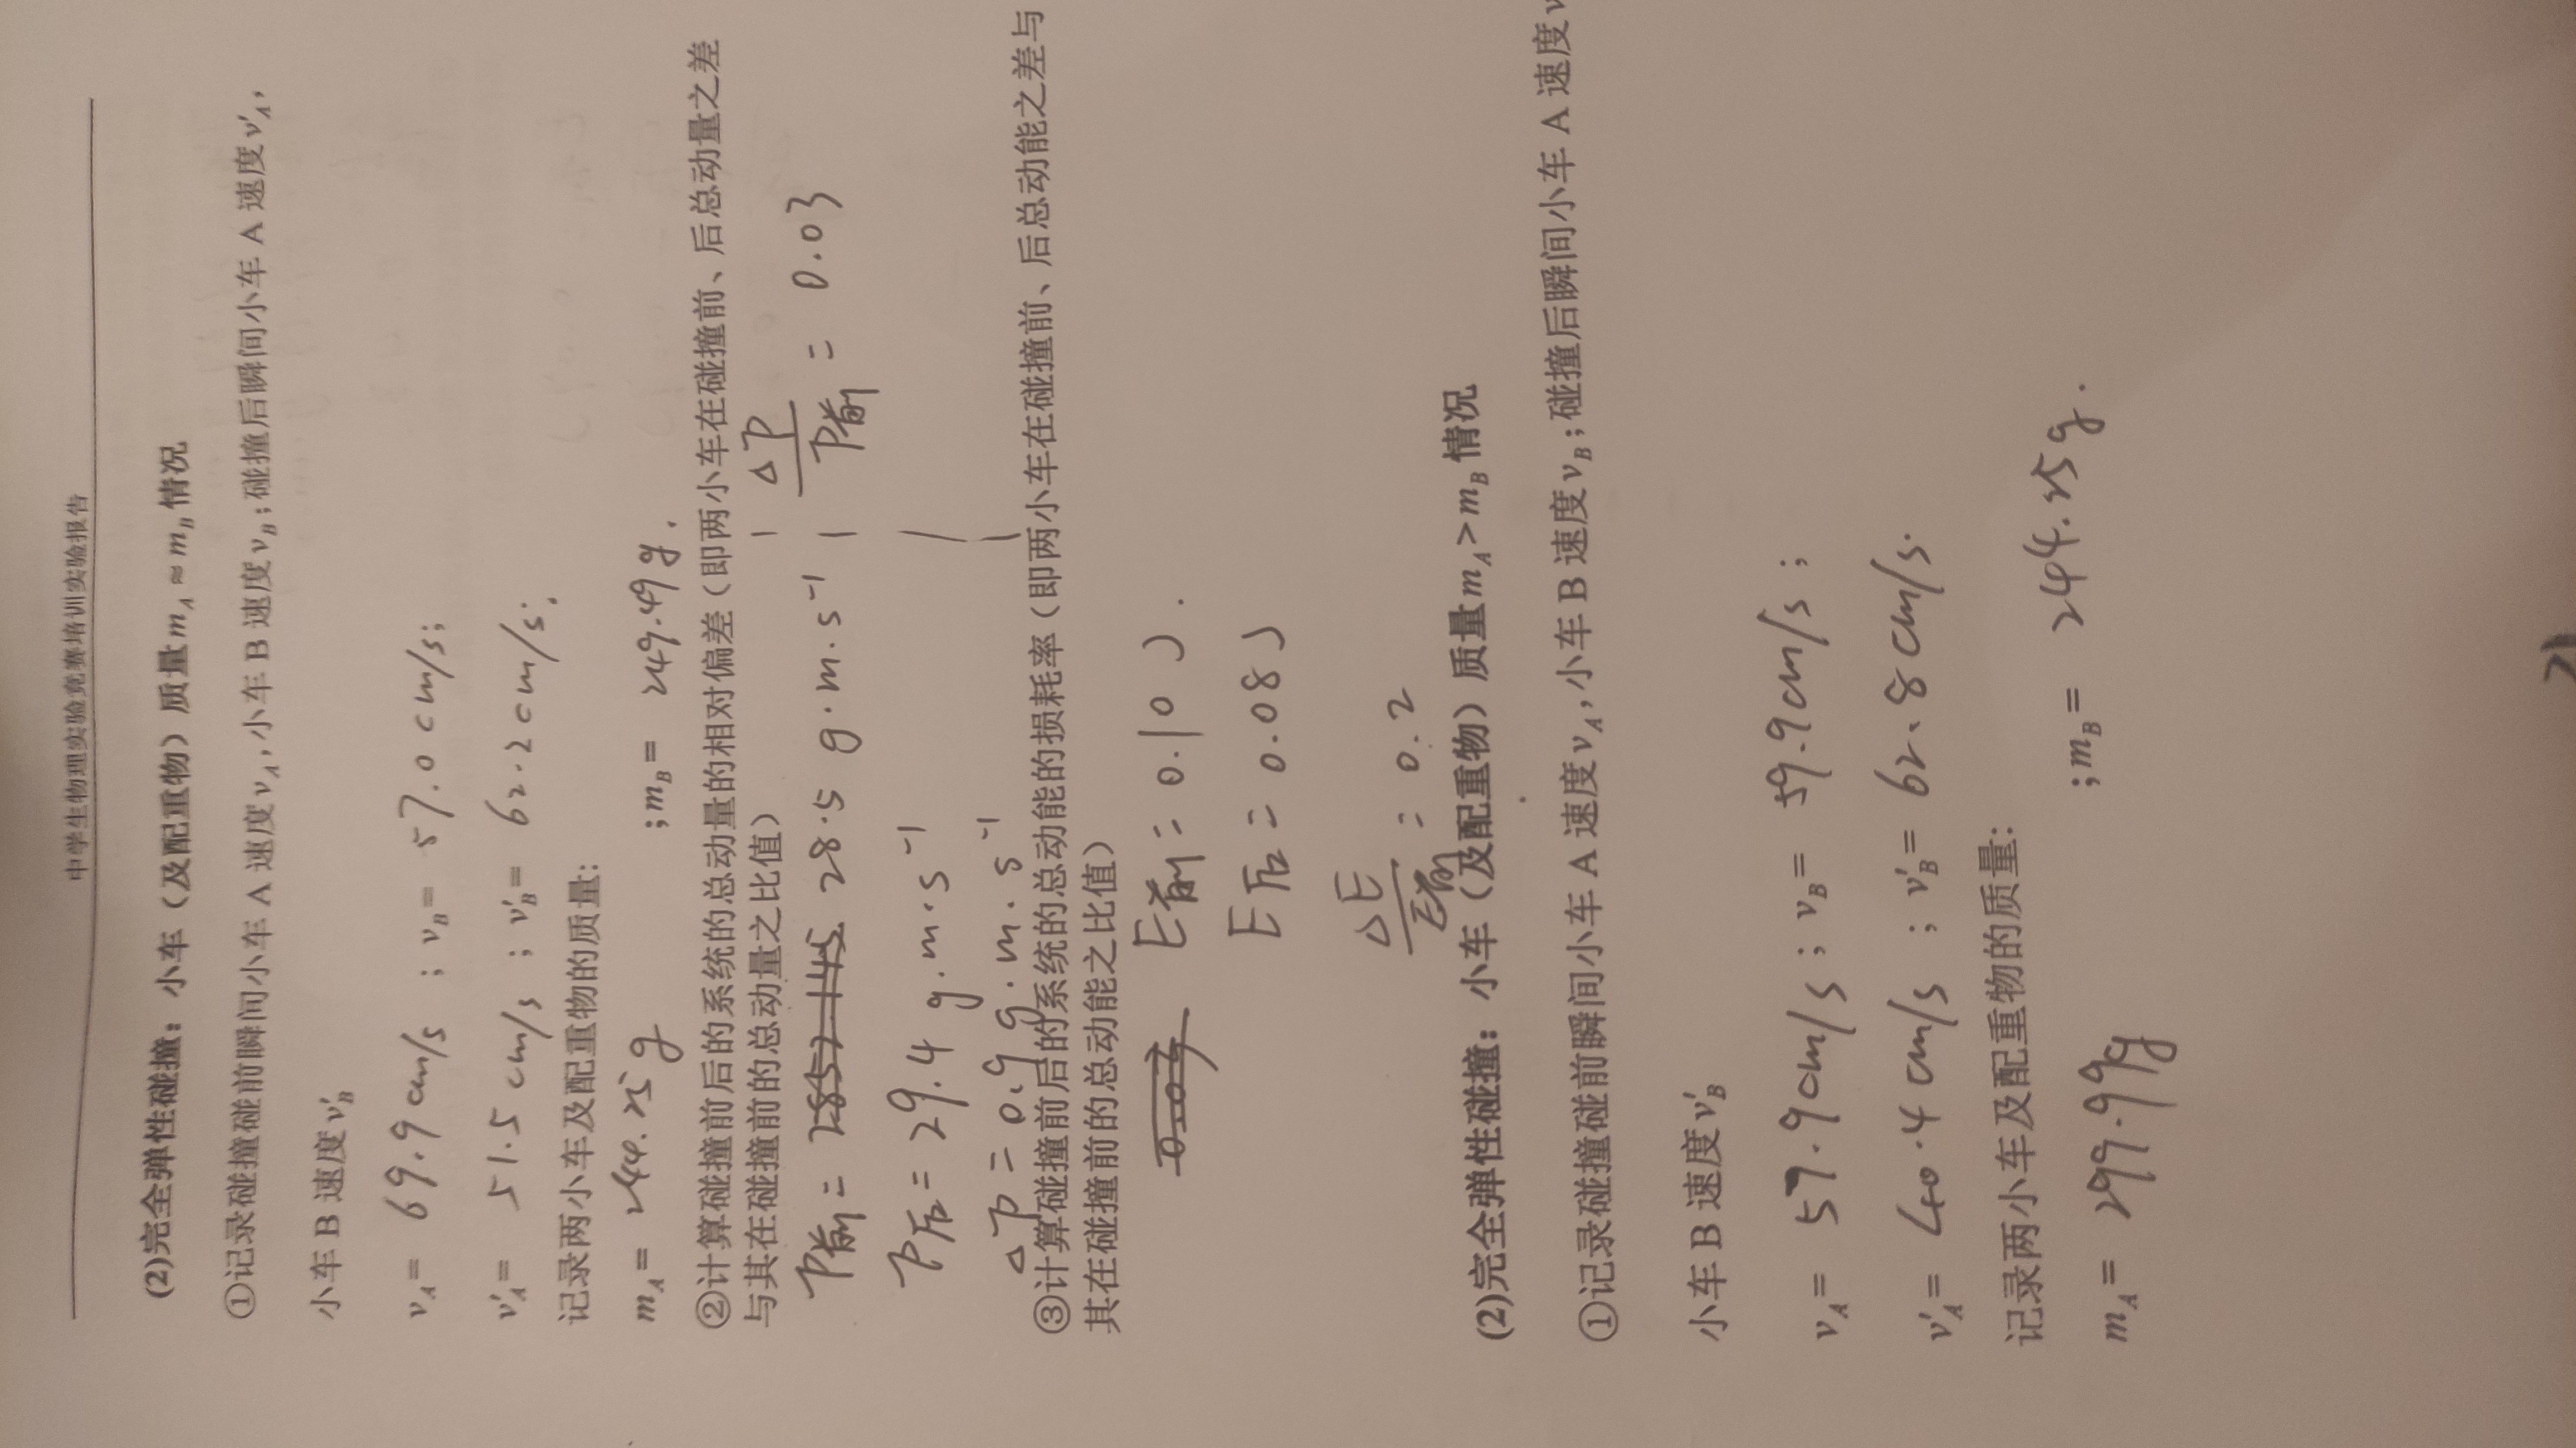 中学生物理实验竞赛培训实验报告
(2)完全弹性碰撞：小车（及配重物）质量 m_A ≈ m_B 情况
①记录碰撞碰前瞬间小车 A 速度 v_A, 小车 B 速度 v_B; 碰撞后瞬间小车 A 速度 v′_A,
小车 B 速度 v′_B
v_A = 69.9 cm/s ; v_B = 57.0 cm/s;
v′_A = 51.5 cm/s ; v′_B = 62.2 cm/s;
记录两小车及配重物的质量:
m_A = 244.25 g ; m_B = 249.49 g.
②计算碰撞前后的系统的总动量的相对偏差（即两小车在碰撞前、后总动量之差
与其在碰撞前的总动量之比值）
P前 = 28.5 g·m·s⁻¹ | ΔP/P前 = 0.03
P后 = 29.4 g·m·s⁻¹
ΔP = 0.9 g·m·s⁻¹
③计算碰撞前后的系统的总动能的损耗率（即两小车在碰撞前、后总动能之差与
其在碰撞前的总动能之比值）
E前 = 0.10 J.
E后 = 0.08 J
ΔE/E前 = 0.2
(2)完全弹性碰撞：小车（及配重物）质量 m_A > m_B 情况
①记录碰撞碰前瞬间小车 A 速度 v_A, 小车 B 速度 v_B; 碰撞后瞬间小车 A 速度 v
小车 B 速度 v′_B
v_A = 57.9 cm/s ; v_B = 59.9 cm/s ;
v′_A = 40.4 cm/s ; v′_B = 62.8 cm/s.
记录两小车及配重物的质量:
m_A = 299.99g ; m_B = 244.25g.